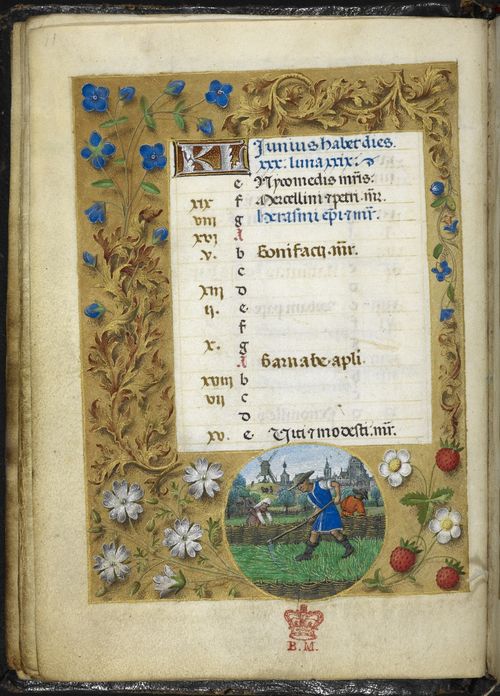 KL Iunius habet dies.
xxx. luna xxix.
e Nycomedis mr̄is.
xix f Mercellini et petri. mr̄.
viii g Herasmi epī et mr̄.
xvi A
v. b Bonifacij. mr̄.
c
xiii d
ii. e
f
x. g
A Barnabe. apli.
xviii b
vii c
d
xv. e Viti et modesti. mr̄.
B. M.